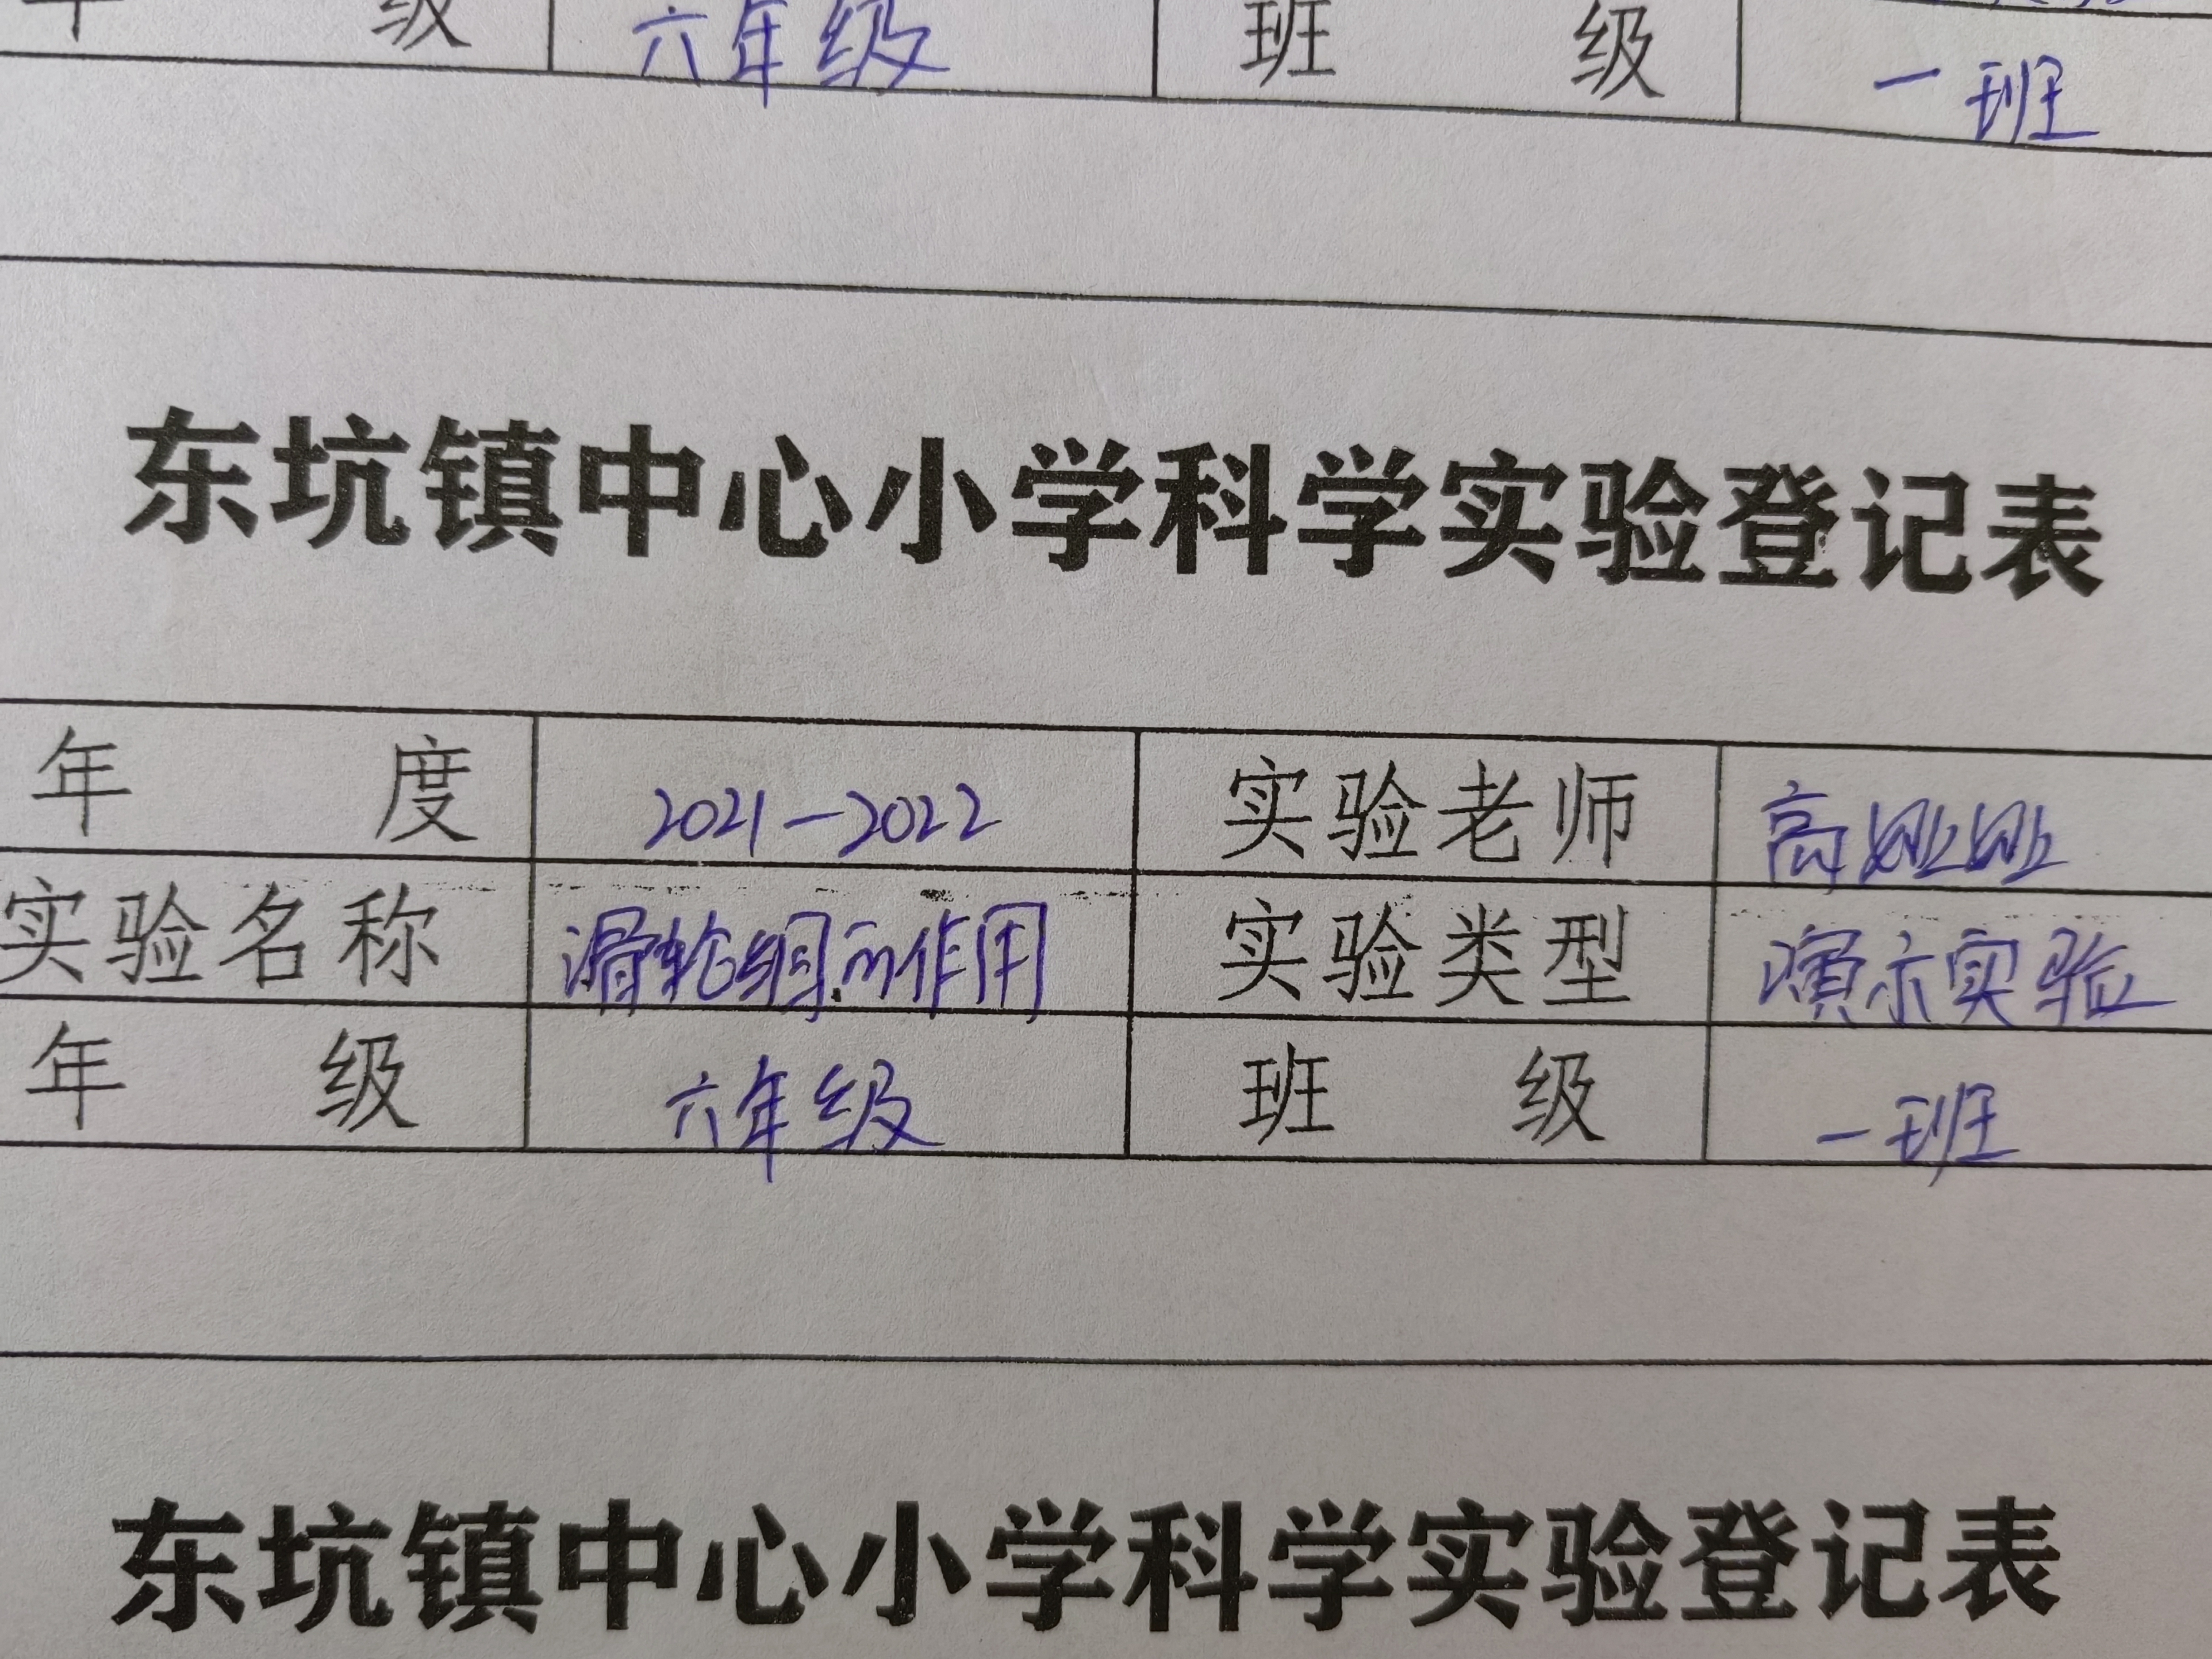 年 级 六年级 班 级 一班
东坑镇中心小学科学实验登记表
年 度 2021-2022 实验老师 高姗姗
实验名称 滑轮组的作用 实验类型 演示实验
年 级 六年级 班 级 一班
东坑镇中心小学科学实验登记表